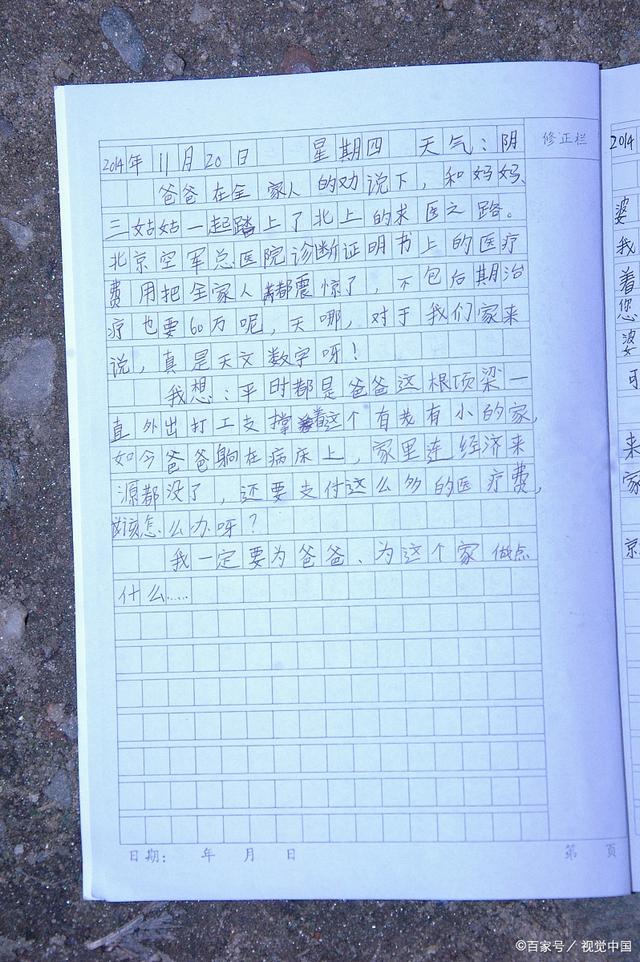 2014年11月20日 星期四 天气：阴
爸爸在全家人的劝说下，和妈妈、
三姑姑一起踏上了北上的求医之路。
北京空军总医院诊断证明书上的医疗
费用把全家人都震惊了，不包后期治
疗也要60万呢，天哪，对于我们家来
说，真是天文数字呀！
我想：平时都是爸爸这根顶梁一
直外出打工支撑着这个有老有小的家，
如今爸爸躺在病床上，家里连经济来
源都没了，还要支付这么多的医疗费，
应该怎么办呀？
我一定要为爸爸、为这个家做点
什么……
日期： 年 月 日
第 页
修正栏
2014
婆
我
着
您
婆
可
来
家
京
©百家号／视觉中国